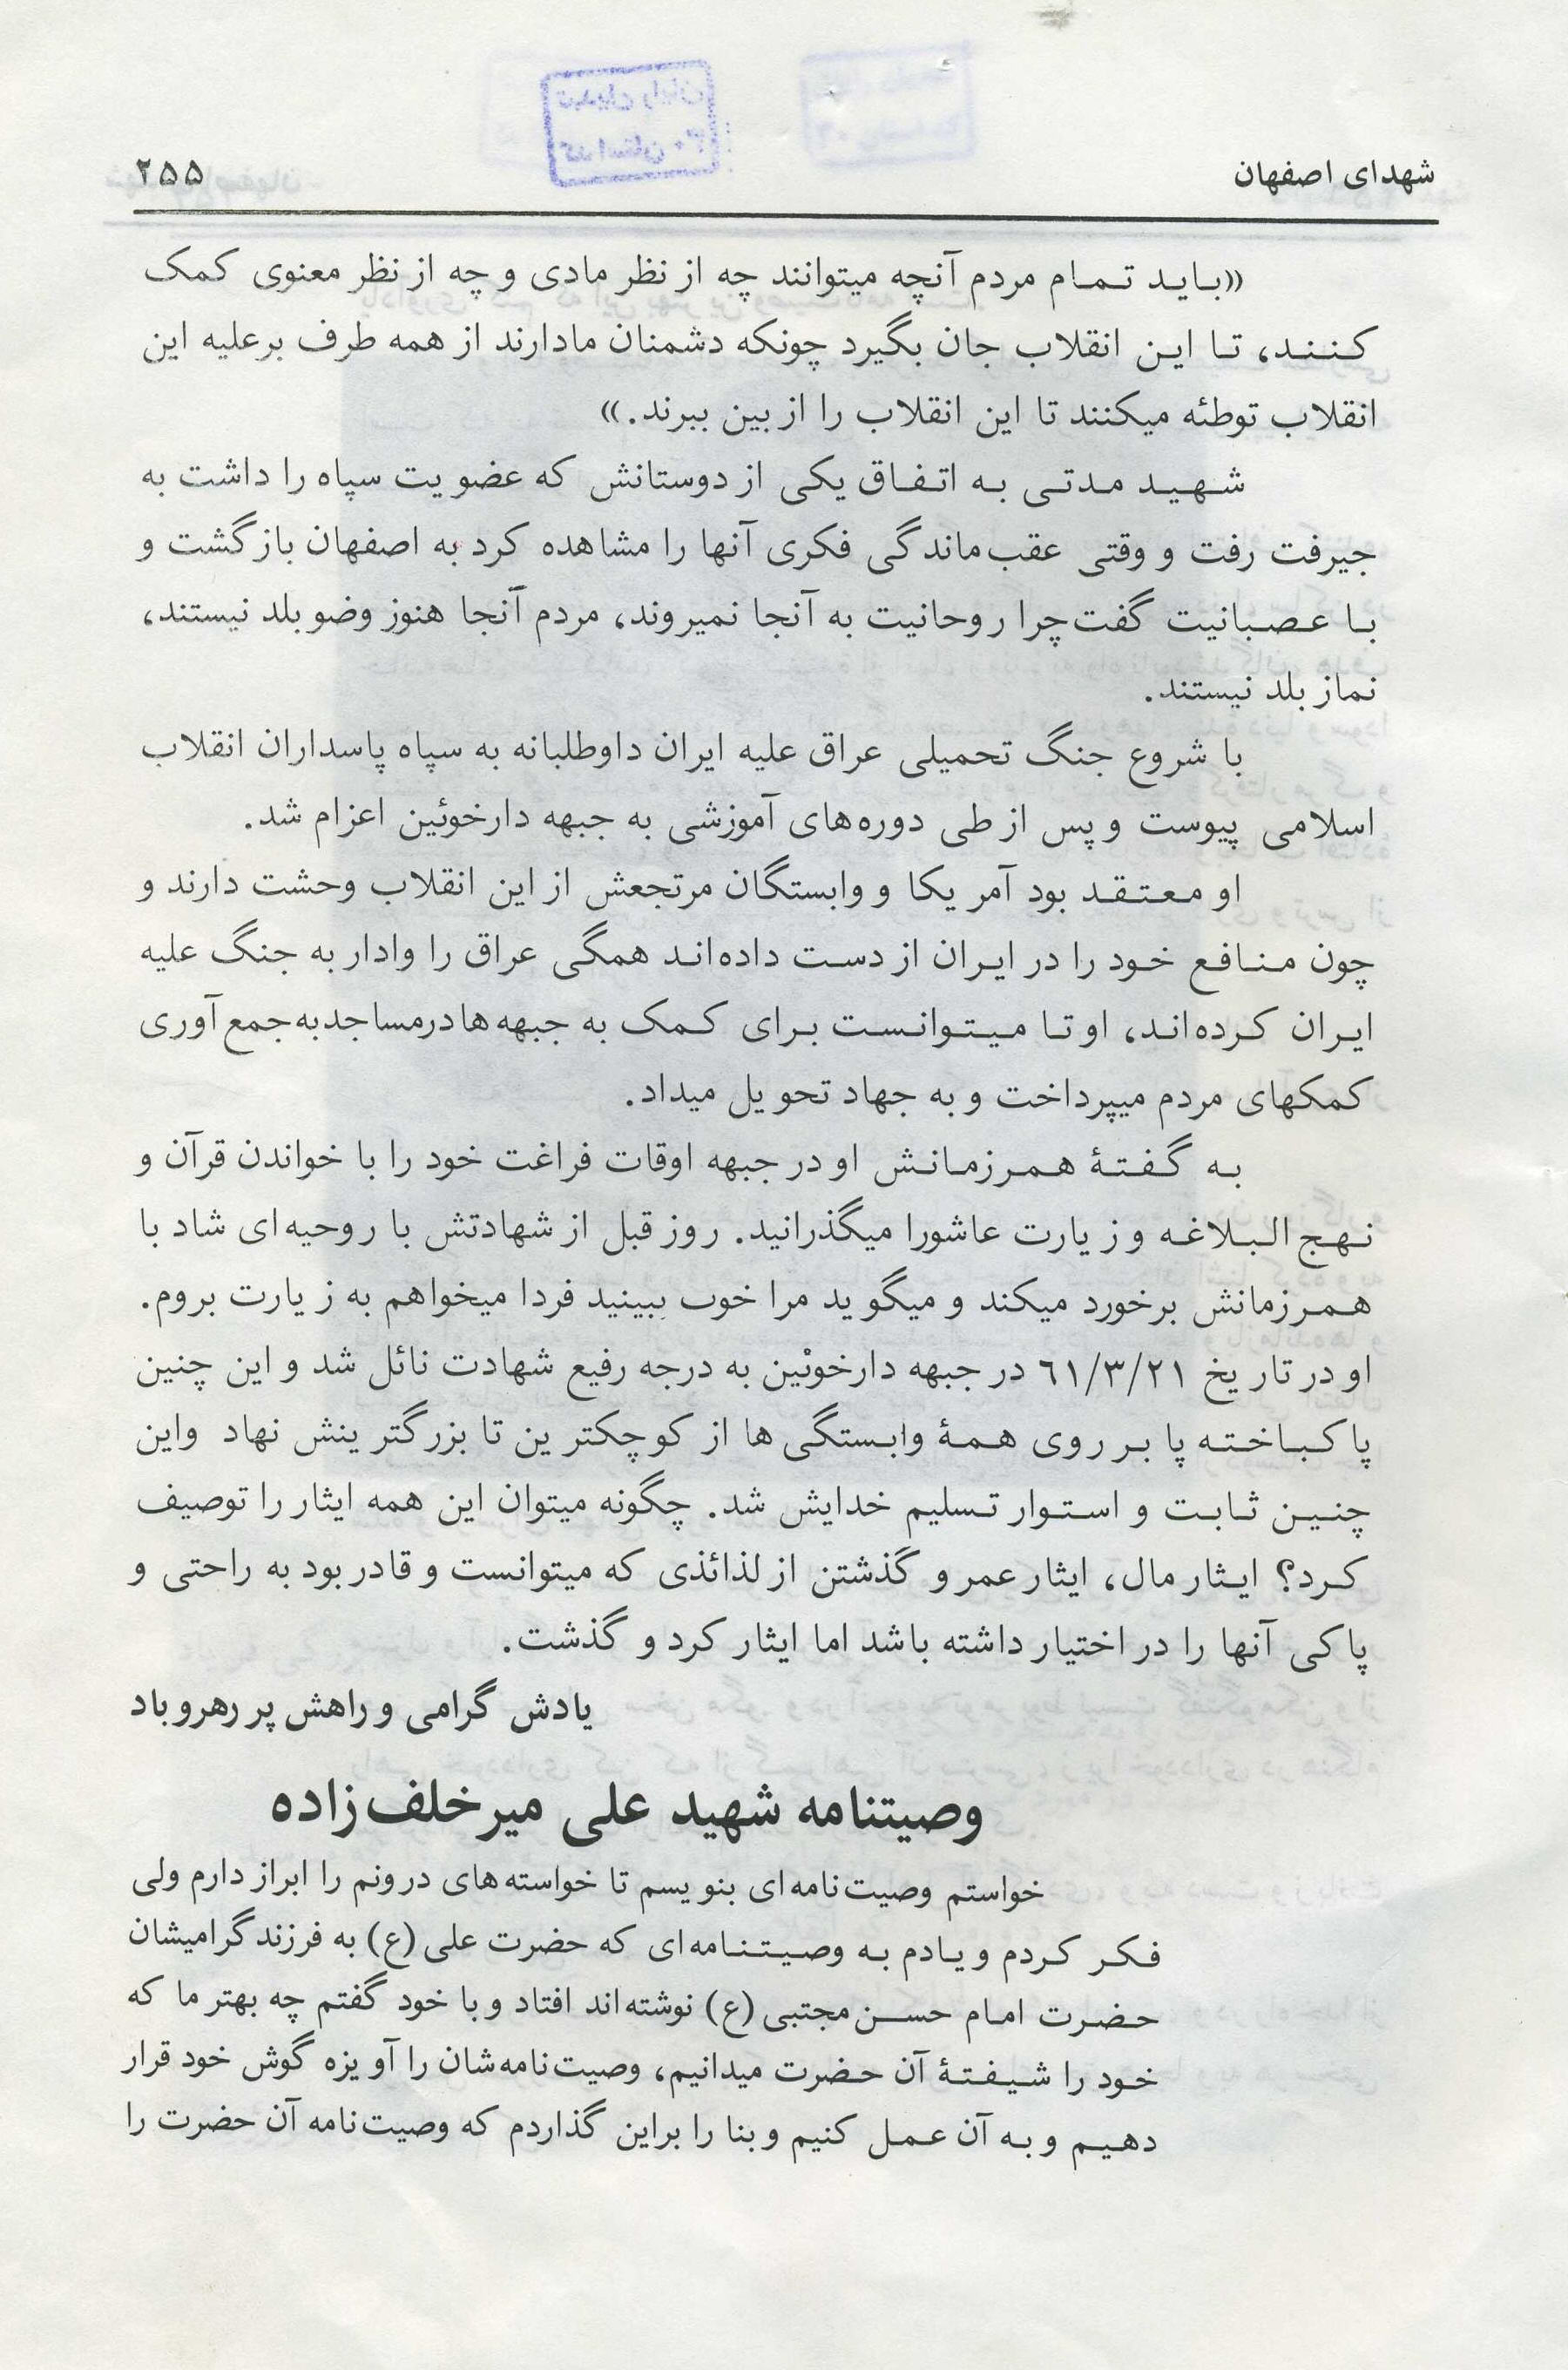 شهدای اصفهان ۲۵۵
«باید تمام مردم آنچه میتوانند چه از نظر مادی و چه از نظر معنوی کمک
کنند، تا این انقلاب جان بگیرد چونکه دشمنان مادارند از همه طرف برعلیه این
انقلاب توطئه میکنند تا این انقلاب را از بین ببرند.»
شهید مدتی به اتفاق یکی از دوستانش که عضویت سپاه را داشت به
جیرفت رفت و وقتی عقب‌ماندگی فکری آنها را مشاهده کرد به اصفهان بازگشت و
با عصبانیت گفت چرا روحانیت به آنجا نمیروند، مردم آنجا هنوز وضو بلد نیستند،
نماز بلد نیستند.
با شروع جنگ تحمیلی عراق علیه ایران داوطلبانه به سپاه پاسداران انقلاب
اسلامی پیوست و پس از طی دوره‌های آموزشی به جبهه دارخوئین اعزام شد.
او معتقد بود آمریکا و وابستگان مرتجعش از این انقلاب وحشت دارند و
چون منافع خود را در ایران از دست داده‌اند همگی عراق را وادار به جنگ علیه
ایران کرده‌اند، او تا میتوانست برای کمک به جبهه‌ها در مساجد به جمع‌آوری
کمکهای مردم میپرداخت و به جهاد تحویل میداد.
به گفتهٔ همرزمانش او در جبهه اوقات فراغت خود را با خواندن قرآن و
نهج البلاغه و زیارت عاشورا میگذرانید. روز قبل از شهادتش با روحیه‌ای شاد با
همرزمانش برخورد میکند و میگوید مرا خوب ببینید فردا میخواهم به زیارت بروم.
او در تاریخ ۶۱/۳/۲۱ در جبهه دارخوئین به درجه رفیع شهادت نائل شد و این چنین
پاکباخته پا بر روی همهٔ وابستگی‌ها از کوچکترین تا بزرگترینش نهاد واین
چنین ثابت و استوار تسلیم خدایش شد. چگونه میتوان این همه ایثار را توصیف
کرد؟ ایثار مال، ایثار عمر و گذشتن از لذائذی که میتوانست و قادر بود به راحتی و
پاکی آنها را در اختیار داشته باشد اما ایثار کرد و گذشت.
یادش گرامی و راهش پر رهرو باد
وصیتنامه شهید علی میرخلف‌زاده
خواستم وصیت‌نامه‌ای بنویسم تا خواسته‌های درونم را ابراز دارم ولی
فکر کردم و یادم به وصیتنامه‌ای که حضرت علی (ع) به فرزند گرامیشان
حضرت امام حسن مجتبی (ع) نوشته‌اند افتاد و با خود گفتم چه بهتر ما که
خود را شیفتهٔ آن حضرت میدانیم، وصیت‌نامه‌شان را آویزه گوش خود قرار
دهیم و به آن عمل کنیم و بنا را براین گذاردم که وصیت‌نامه آن حضرت را